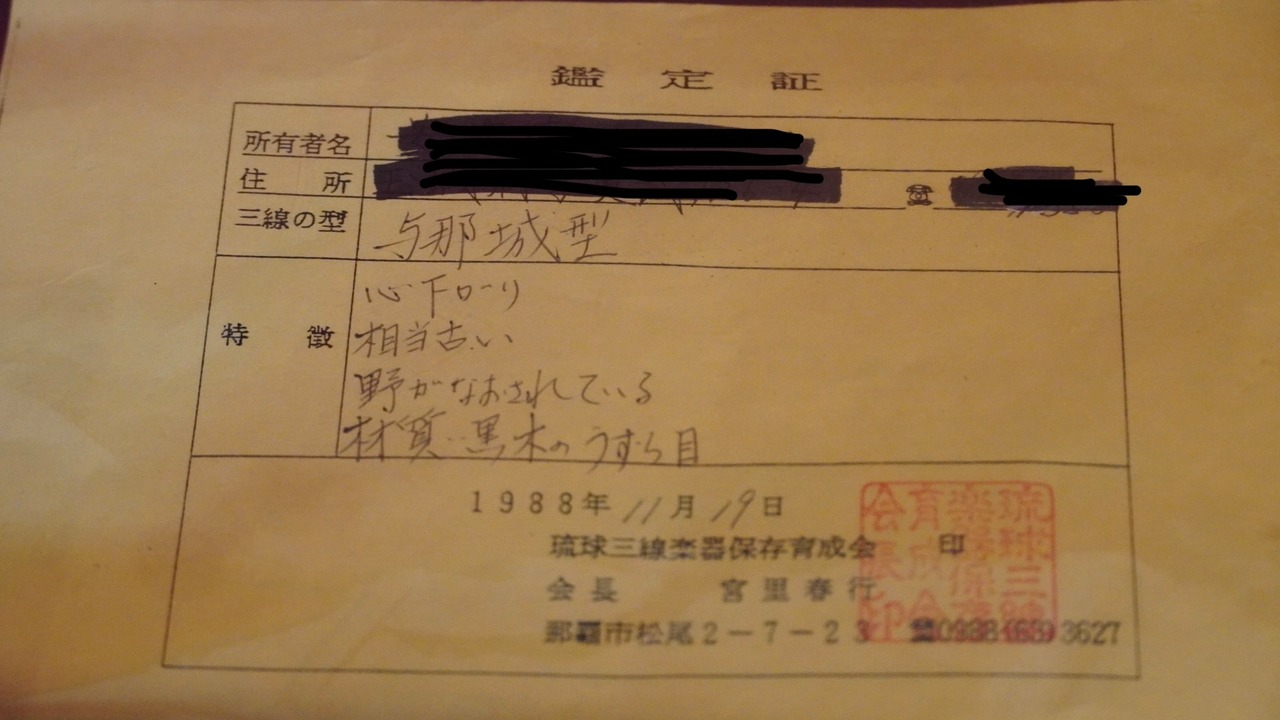 鑑定証
所有者名
住所 ☎
三線の型 与那城型
特徴 心下ローリ
相当古い
野がなおされている
材質‥黒木のうすら目
1988年11月19日
琉球三線楽器保存育成会 印
会長 宮里春行
那覇市松尾2-7-23 ☎0988(63)3627
琉球三線楽器保存育成会会長印